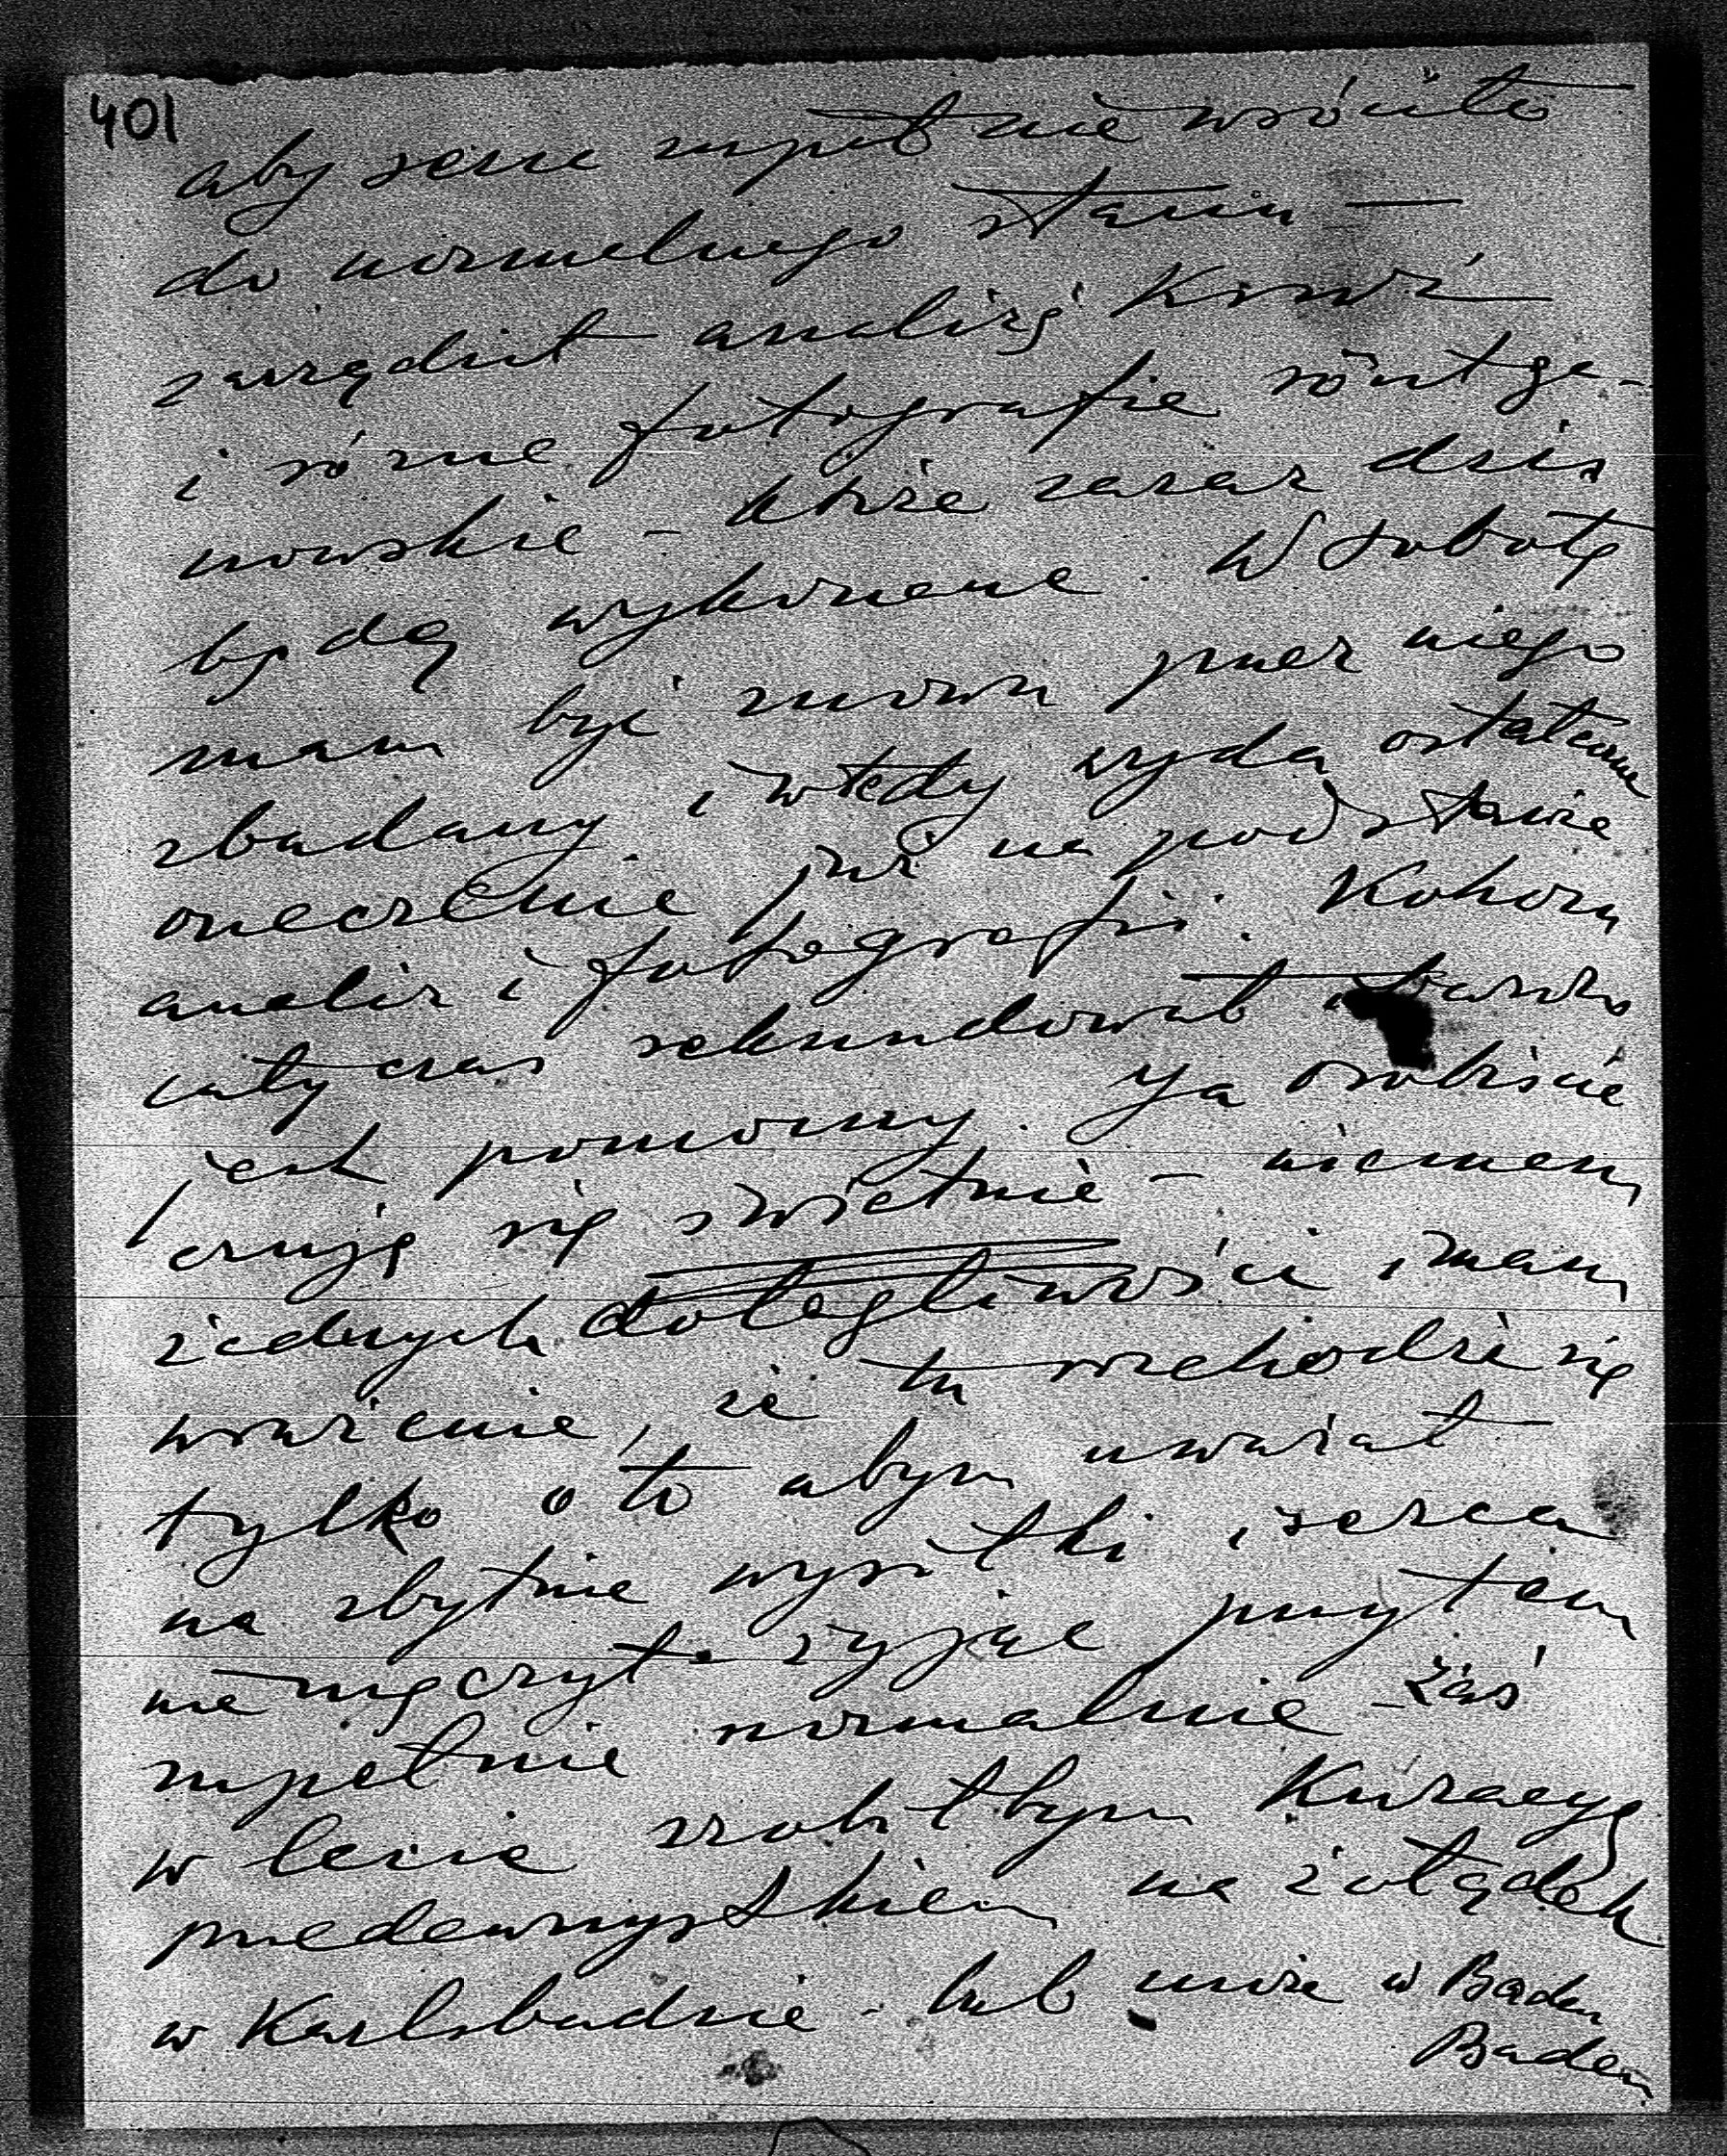 401
aby serce zupełnie wróciło
do normalnego stanu —
zarządził analizę Krwi
i różne fotografie röntge-
nowskie - które zaraz dziś
będą wykonane. W sobotę
mam być znowu przez niego
zbadany i wtedy wyda ostateczne
orzeczenie już na podstawie
analiz i fotografji. Kohorn
cały czas sekundował i bardzo
jest pomocny. Ja osobiście
czuję się świetnie - niemam
żadnych dolegliwości i mam
wrażenie, że tu rozchodzi się
tylko o to abym uważał
na zbytnie wysiłki i serca
nie męczył - żyjąc przytem
zupełnie normalnie - zaś
w lecie zrobiłbym Kurację
przedewszystkiem na żołądek
w Karlsbadzie - lub może w Baden
Baden